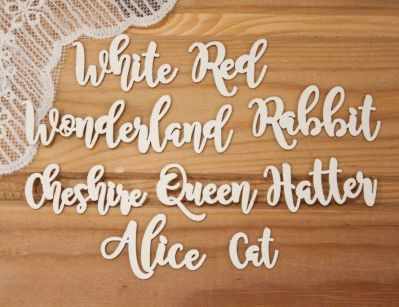 White Red
Wonderland Rabbit
Cheshire Queen Hatter
Alice Cat